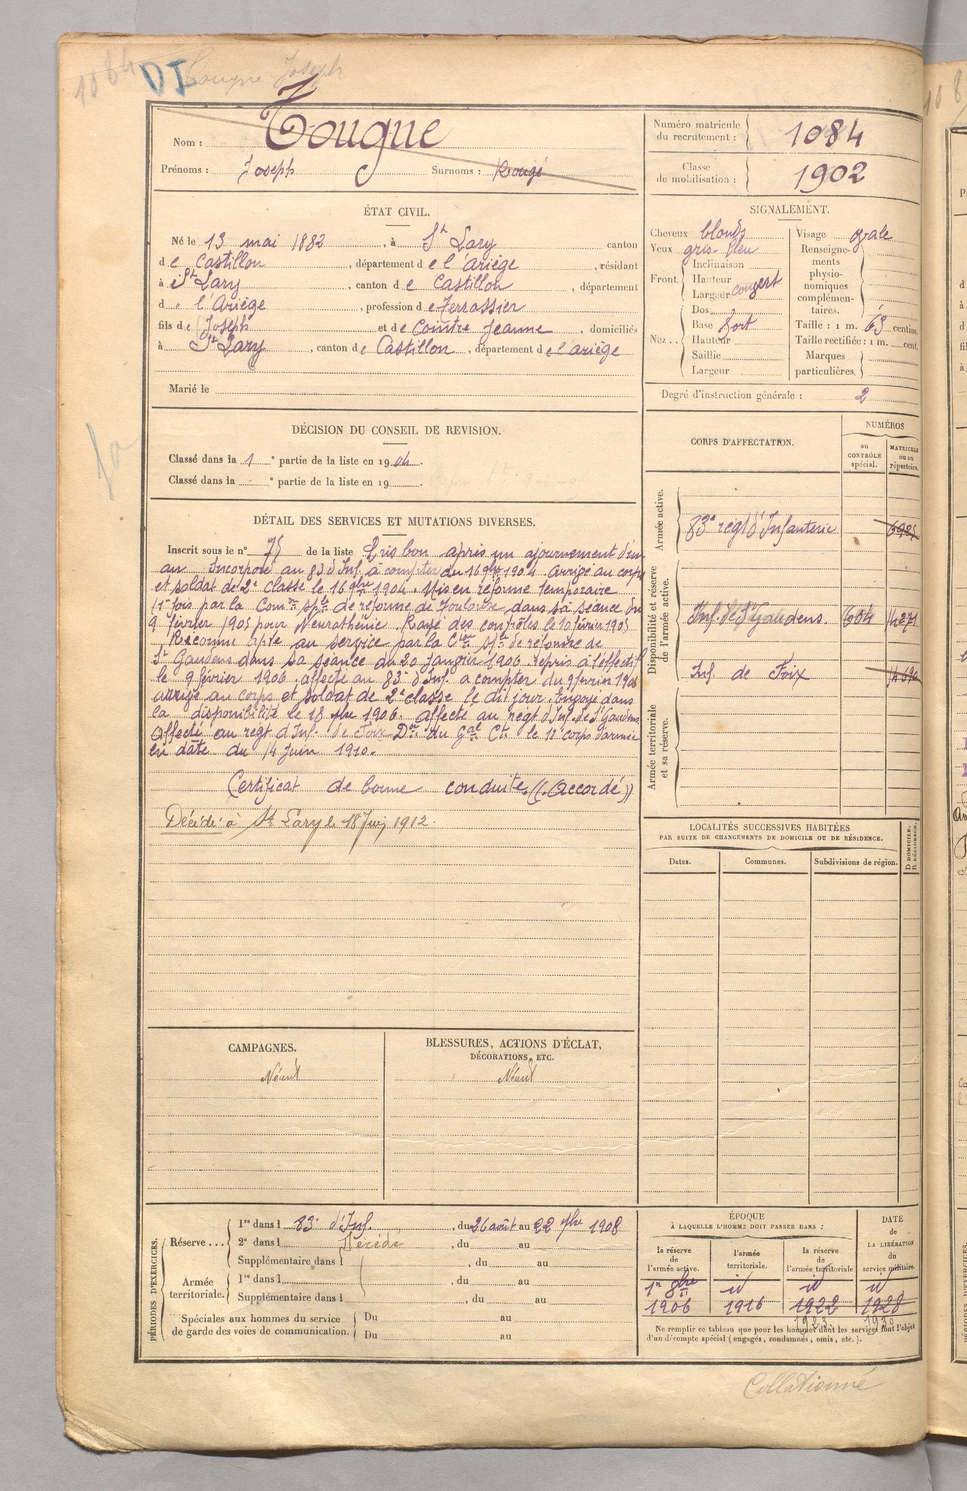 1084 DI Tougne Joseph
Nom : Tougne
Prénoms : Joseph Surnoms : Rougé
Numéro matricule du recrutement : 1084
Classe de mobilisation : 1902
ÉTAT CIVIL.
Né le 13 mai 1882, à St Lary canton
de Castillon, département de l'Ariège, résidant
à St Lary, canton de Castillon, département
d l'Ariège, profession de Terrassier
fils de Joseph et de Comitre Jeanne, domiciliés
à St Lary, canton de Castillon, département de l'ariège
Marié le
SIGNALEMENT.
Cheveux blonds
Yeux gris-bleu
Front. Inclinaison
Hauteur
Largeur
Nez.. Dos
Base fort
Hauteur
Saillie
Largeur
Visage ovale
Renseignements physionomiques complémentaires.
Taille : 1 m. 63 centim.
Taille rectifiée : 1 m. cent.
Marques particulières.
Degré d'instruction générale : 2
DÉCISION DU CONSEIL DE REVISION.
Classé dans la 1e partie de la liste en 1904.
Classé dans la e partie de la liste en 19
DÉTAIL DES SERVICES ET MUTATIONS DIVERSES.
Inscrit sous le n° 75 de la liste Pris bon après un ajournement d'un
an Incorporé au 83 d'Inf. à compter du 16 9bre 1904. Arrivé au corps
et soldat de 2e Classe le 16 9bre 1904. Mis en réforme temporaire
(1re fois par la Comon Sple de réforme de Toulouse dans sa séance du
9 février 1905 pour Neurasthénie. Rayé des contrôles le 10 février 1905
Reconnu apte au service par la Con Sple de réforme de
St Gaudens dans sa séance du 20 Janvier 1906 repris à l'effectif
le 9 février 1906. affecté au 83e d'Inf. à compter du 9 février 1906
arrivé au corps et soldat de 2e classe le dit jour. Envoyé dans
la disponibilité le 18 1906. affecté au régt d'Inf. de St Gaudens
Affecté au régt d'Inf. de Foix Don du Gal Ct le 17e corps d'armée
en date du 14 Juin 1910.
Certificat de bonne conduite ((Accordé))
Décédé à St Lary le 18 1912.
CORPS D'AFFECTATION.
NUMÉROS
au CONTRÔLE spécial.
MATRICULE ou au répertoire.
Armée active.
83e régt d'Infanterie
Disponibilité et réserve de l'armée active.
Inf. de St Gaudens.
Inf. de Foix
Armée territoriale et sa réserve.
LOCALITÉS SUCCESSIVES HABITÉES
PAR SUITE DE CHANGEMENTS DE DOMICILE OU DE RÉSIDENCE.
Dates. Communes. Subdivisions de région. D DOMICILE, R RÉSIDENCE.
CAMPAGNES.
Néant
BLESSURES, ACTIONS D'ÉCLAT,
DÉCORATIONS, ETC.
Néant
PÉRIODES D'EXERCICES.
Réserve... 1re dans l 83e d'Inf., du 26 août au 22 7bre 1908
2e dans l Décédé, du au
Supplémentaire dans l, du au
Armée territoriale. 1re dans l, du au
Supplémentaire dans l, du au
Spéciales aux hommes du service de garde des voies de communication. Du au
Du au
ÉPOQUE
À LAQUELLE L'HOMME DOIT PASSER DANS :
la réserve de l'armée active. l'armée territoriale. la réserve de l'armée territoriale
DATE de LA LIBÉRATION du service militaire.
1er 8bre id id id
1906 1916 1922 1928
1923 1930
Ne remplir ce tableau que pour les hommes dont les services font l'objet
d'un décompte spécial (engagés, condamnés, omis, etc.).
Collationné